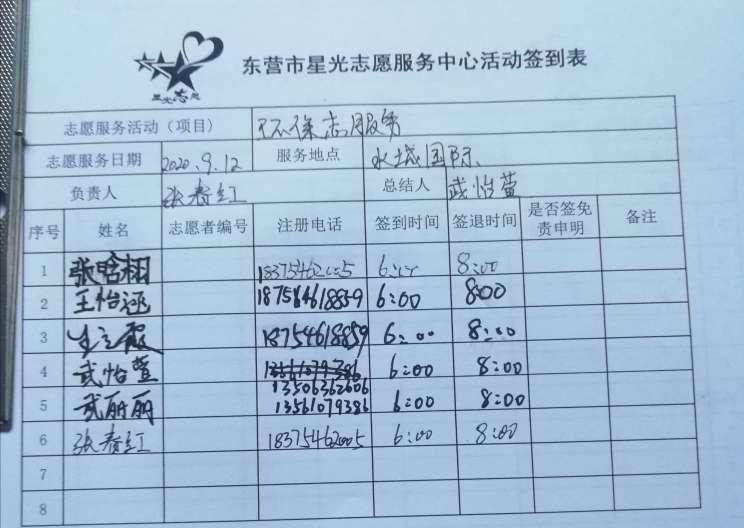 东营市星光志愿服务中心活动签到表
志愿服务活动（项目） 环保志服务
志愿服务日期 2020.9.12 服务地点 水城国际
负责人 张春红 总结人 武怡萱
序号 姓名 志愿者编号 注册电话 签到时间 签退时间 是否签免责申明 备注
1 张晗栩 18375462005 6:00 8:00
2 王怡 18754618859 6:00 8:00
3 18754618859 6:00 8:00
4 武怡萱 13561079386 6:00 8:00
13506362606
5 武丽丽 13561079386 6:00 8:00
6 张春红 18375462005 6:00 8:00
7
8